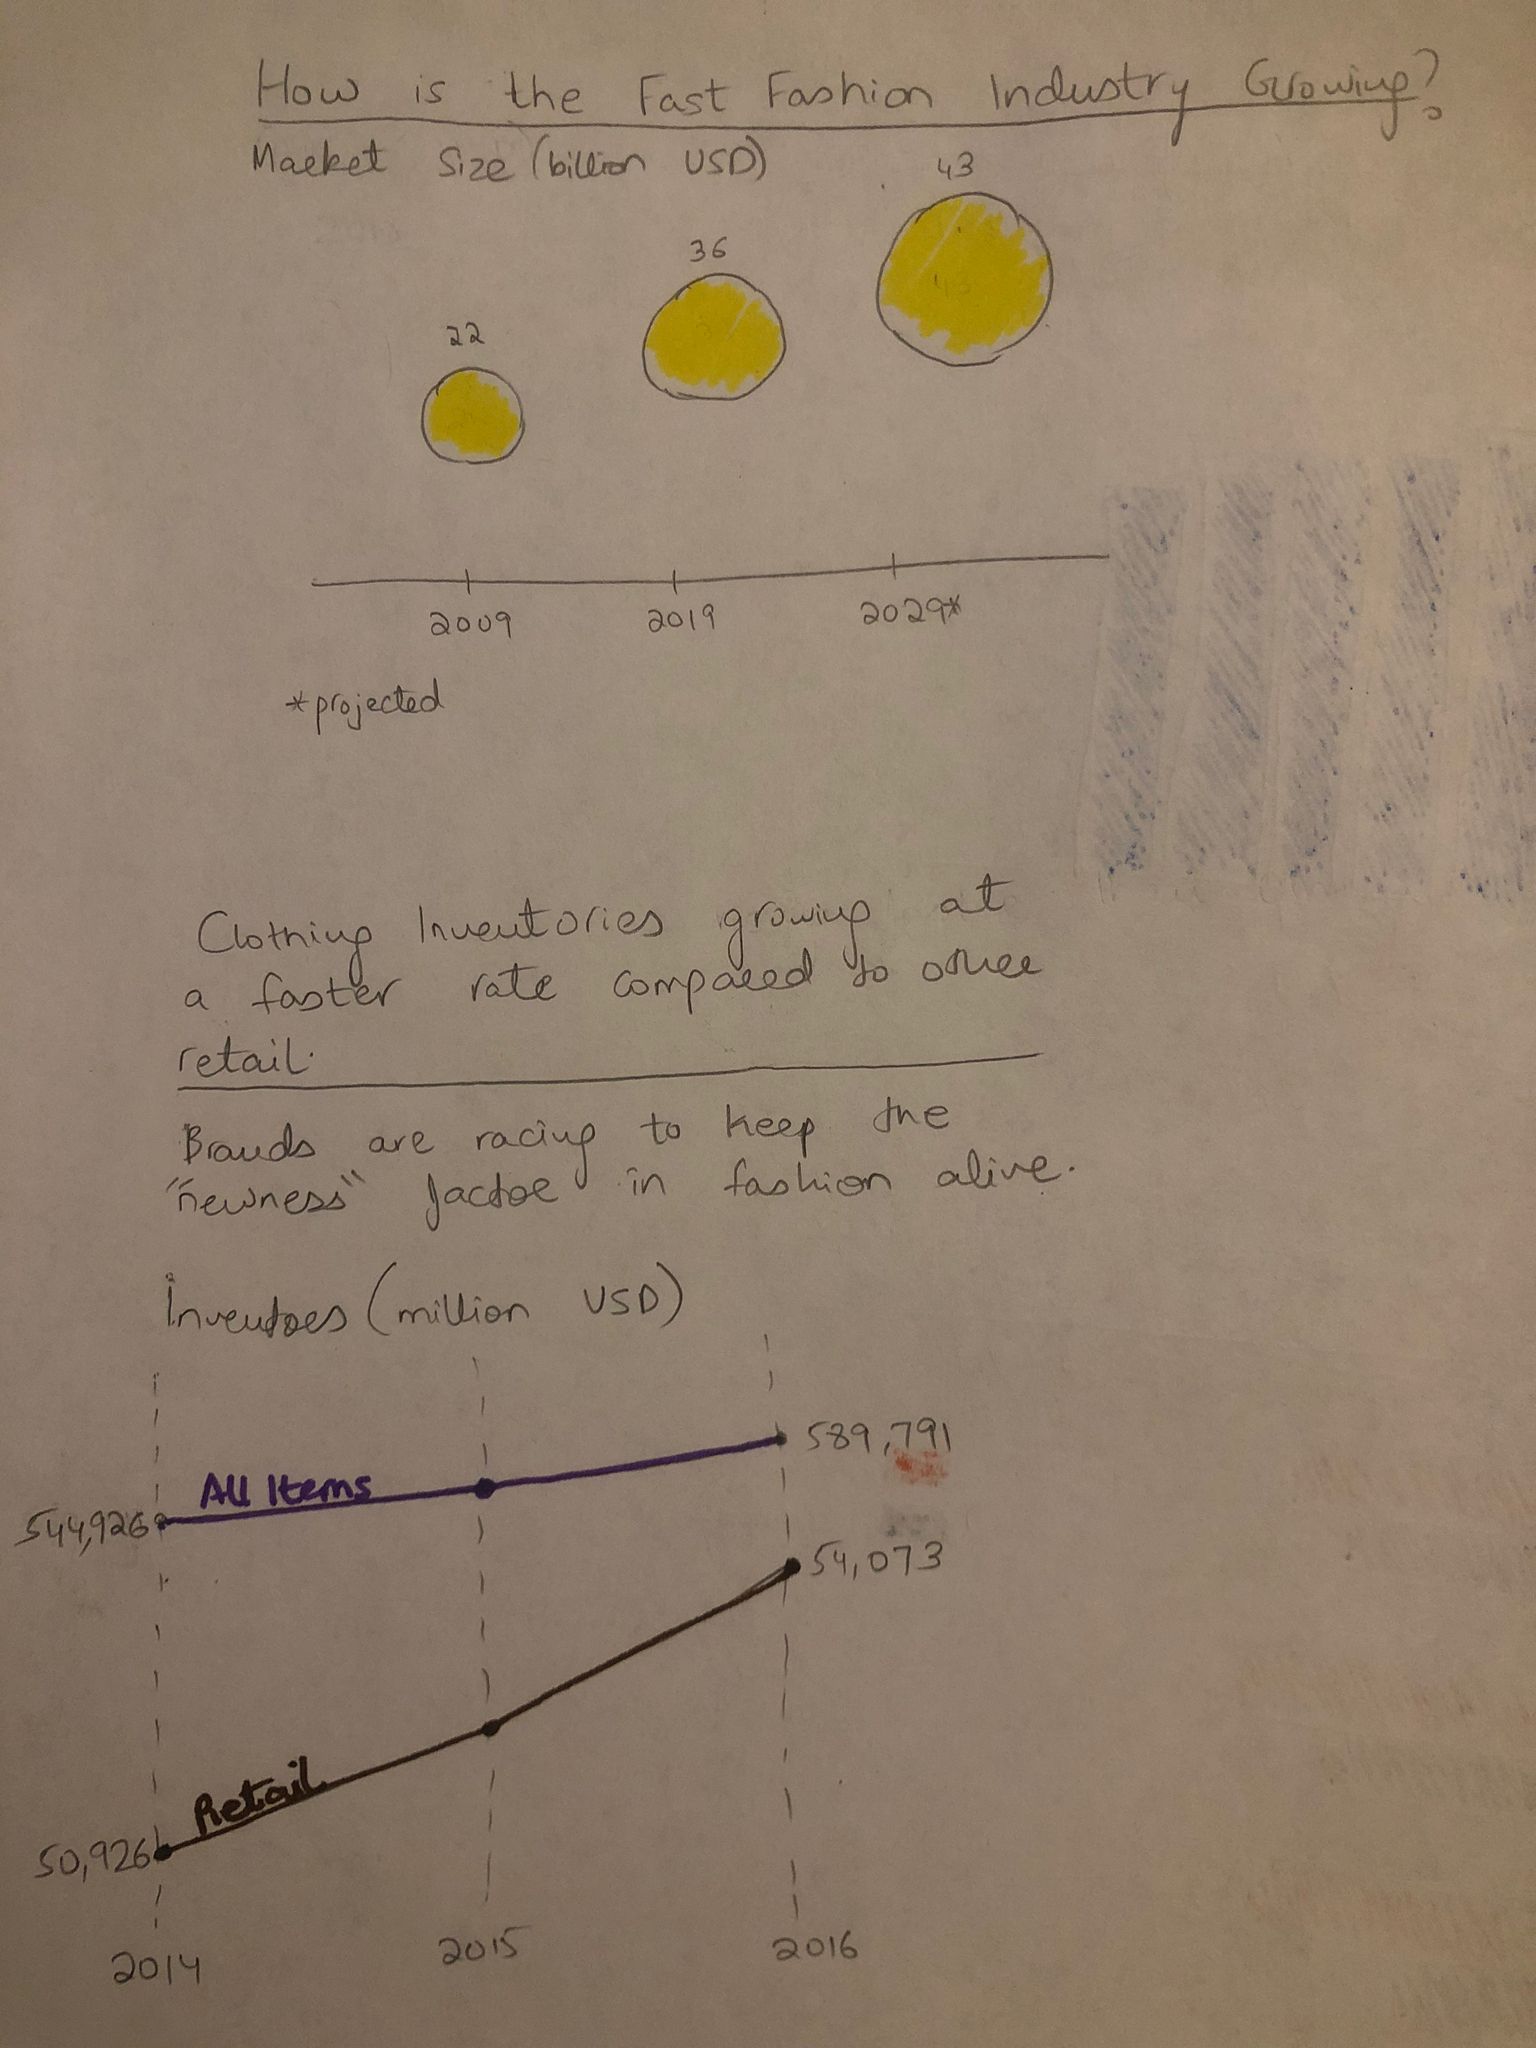 How is the Fast Fashion Industry Growing?
Market Size (billion USD)
43
36
22
2009 2019 2029*
*projected
Clothing Inventories growing at
a faster rate compared to other
retail.
Brands are racing to keep the
"newness" factor in fashion alive.
Inventoes (million USD)
589,791
All Items
544,926
54,073
Retail
50,926
2014 2015 2016